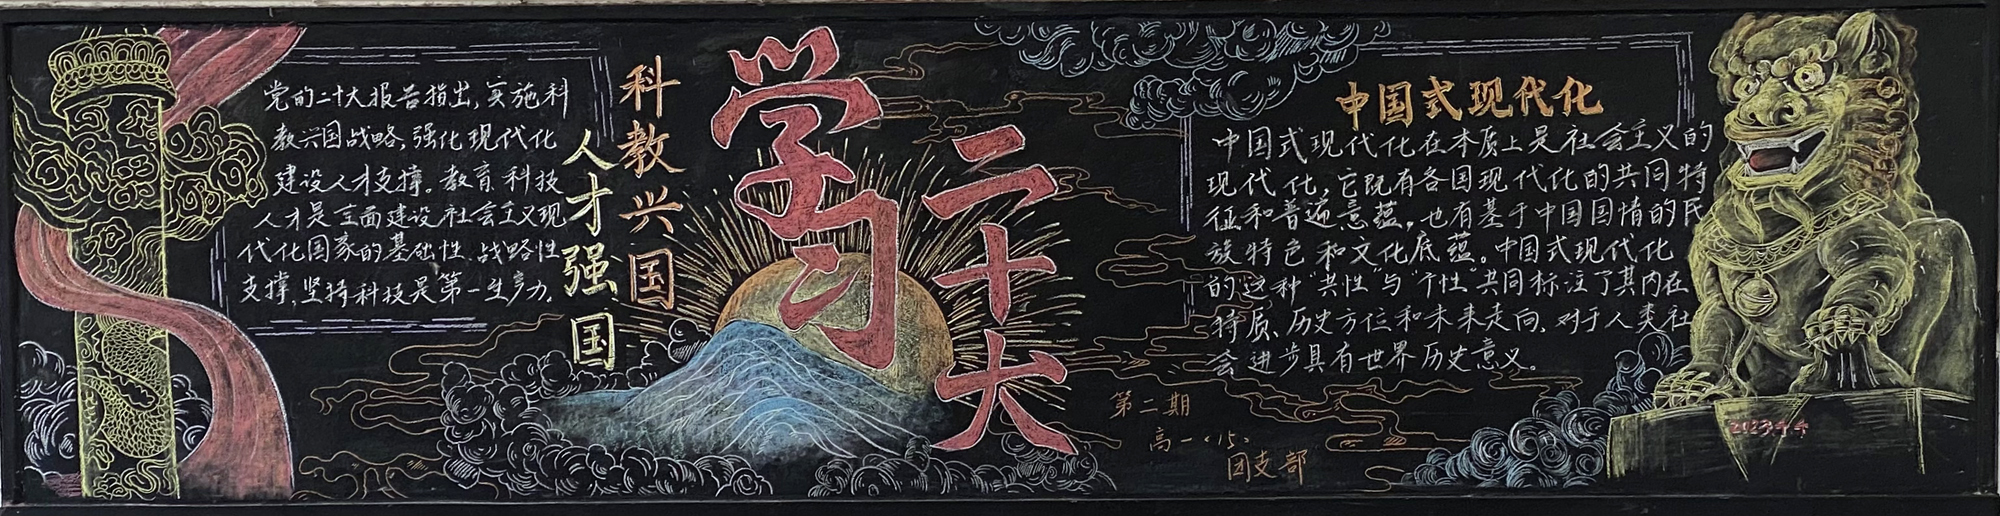 党的二十大报告指出,实施科
教兴国战略,强化现代化
建设人才支撑。教育科技
人才是全面建设社会主义现
代化国家的基础性、战略性
支撑,坚持科技是第一生产力.
科教兴国
人才强国
学习
二十大
中国式现代化
中国式现代化在本质上是社会主义的
现代化,它既有各国现代化的共同特
征和普遍意蕴,也有基于中国国情的民
族特色和文化底蕴。中国式现代化
的这种"共性"与"个性"共同标注了其内在
特质、历史方位和未来走向、对于人类社
会进步具有世界历史意义。
第二期
高一<15>
团支部